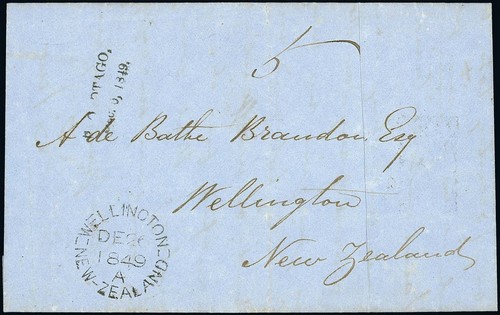 5
OTAGO.
9, 1849.
A de Bathe Brandon Esq
Wellington
New Zealand
WELLINGTON
DE 2
1849
A
NEW-ZEALAND